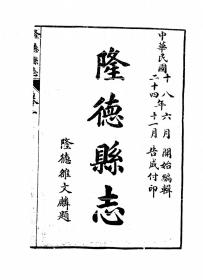 中華民國十八年六月開始編輯
二十四年十一月告成付印
隆德縣志
隆德雒文麟題
隆德縣志